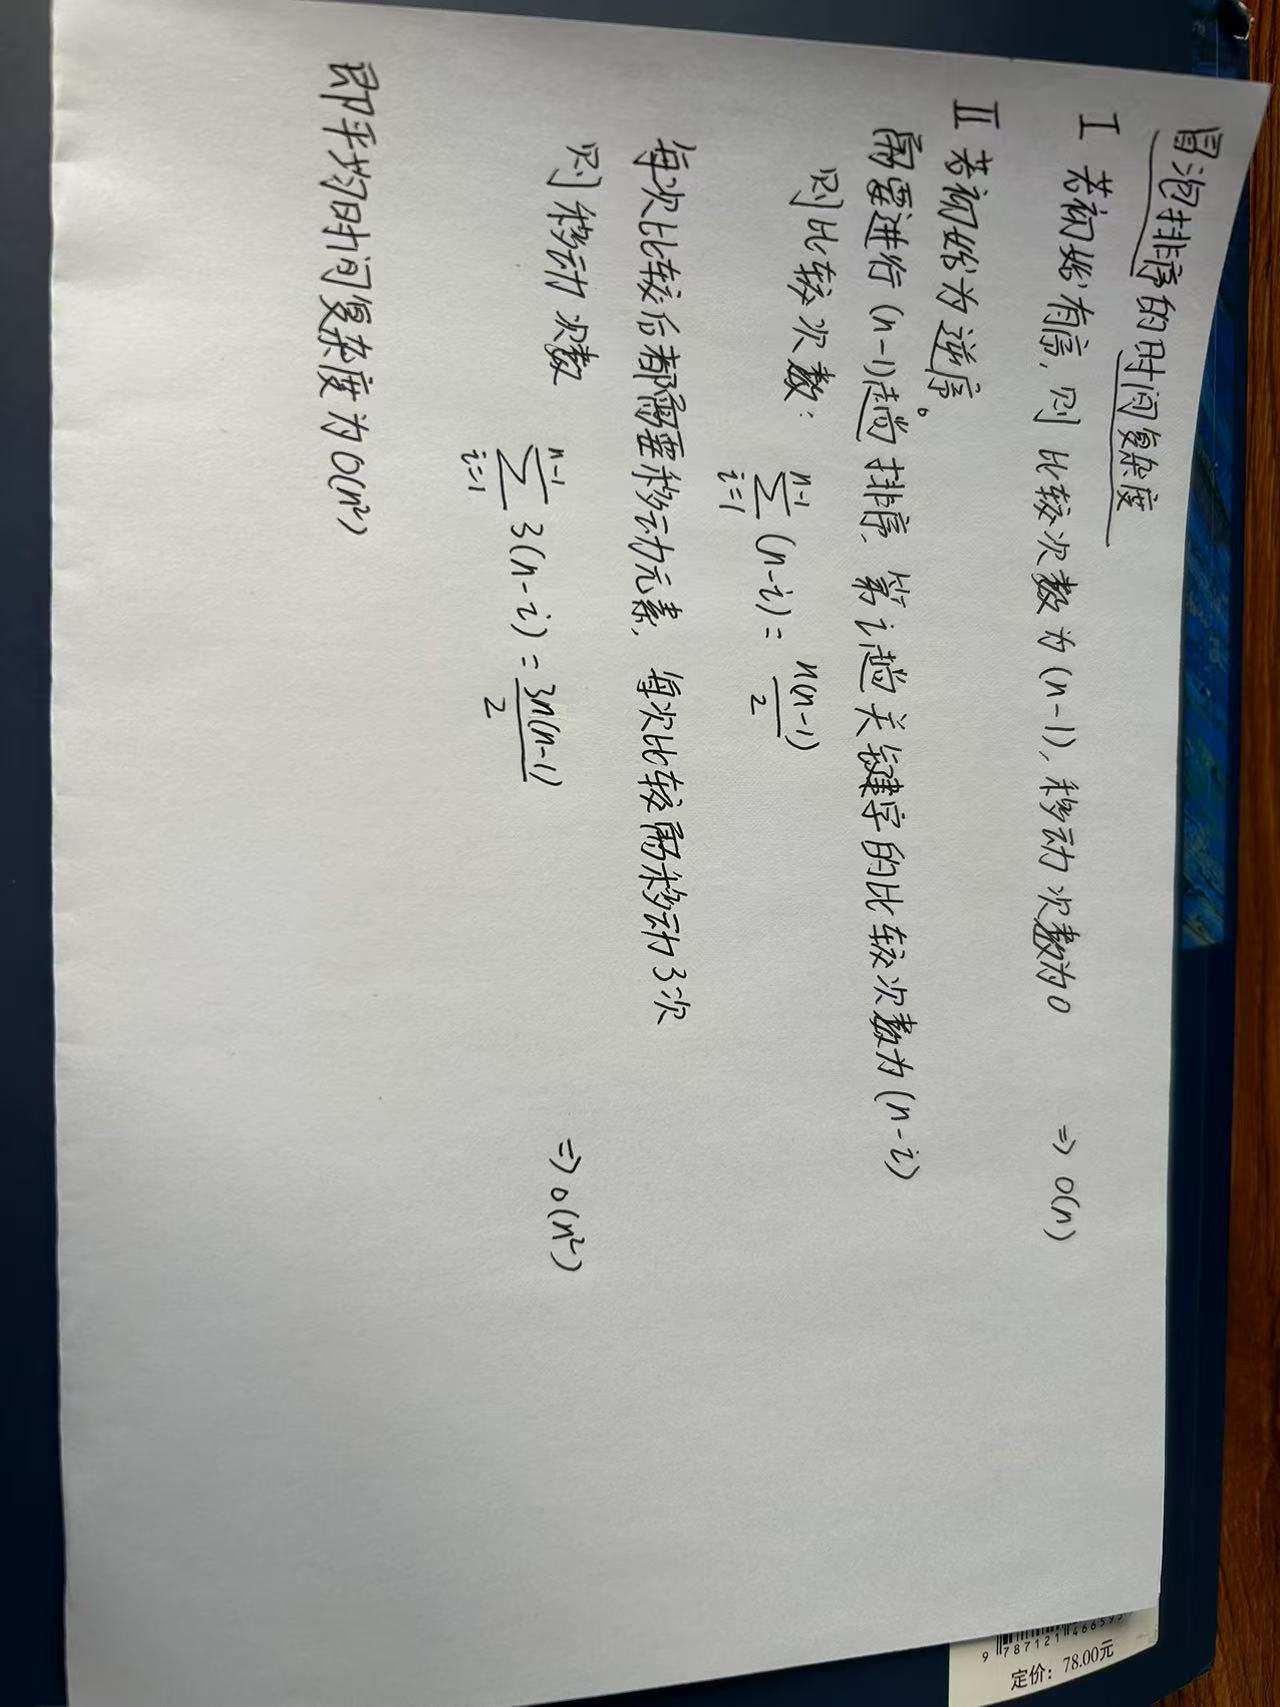 冒泡排序的时间复杂度
I 若初始有序，则比较次数为(n-1)，移动次数为0 ⇒ O(n)
II 若初始为逆序。
需要进行(n-1)趟排序，第i趟关键字的比较次数为(n-i)
则比较次数： ∑_{i=1}^{n-1} (n-i) = n(n-1)/2
每次比较后都需要移动元素，每次比较需移动3次
则移动次数 ∑_{i=1}^{n-1} 3(n-i) = 3n(n-1)/2 ⇒ O(n²)
即平均时间复杂度为O(n²)
9 787121 466595
定价：78.00元